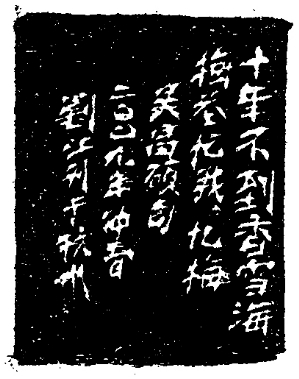 十年不到香雪海
梅花忆我々忆梅
吴昌硕句
二〇〇九年仲春
劉江刊于杭州